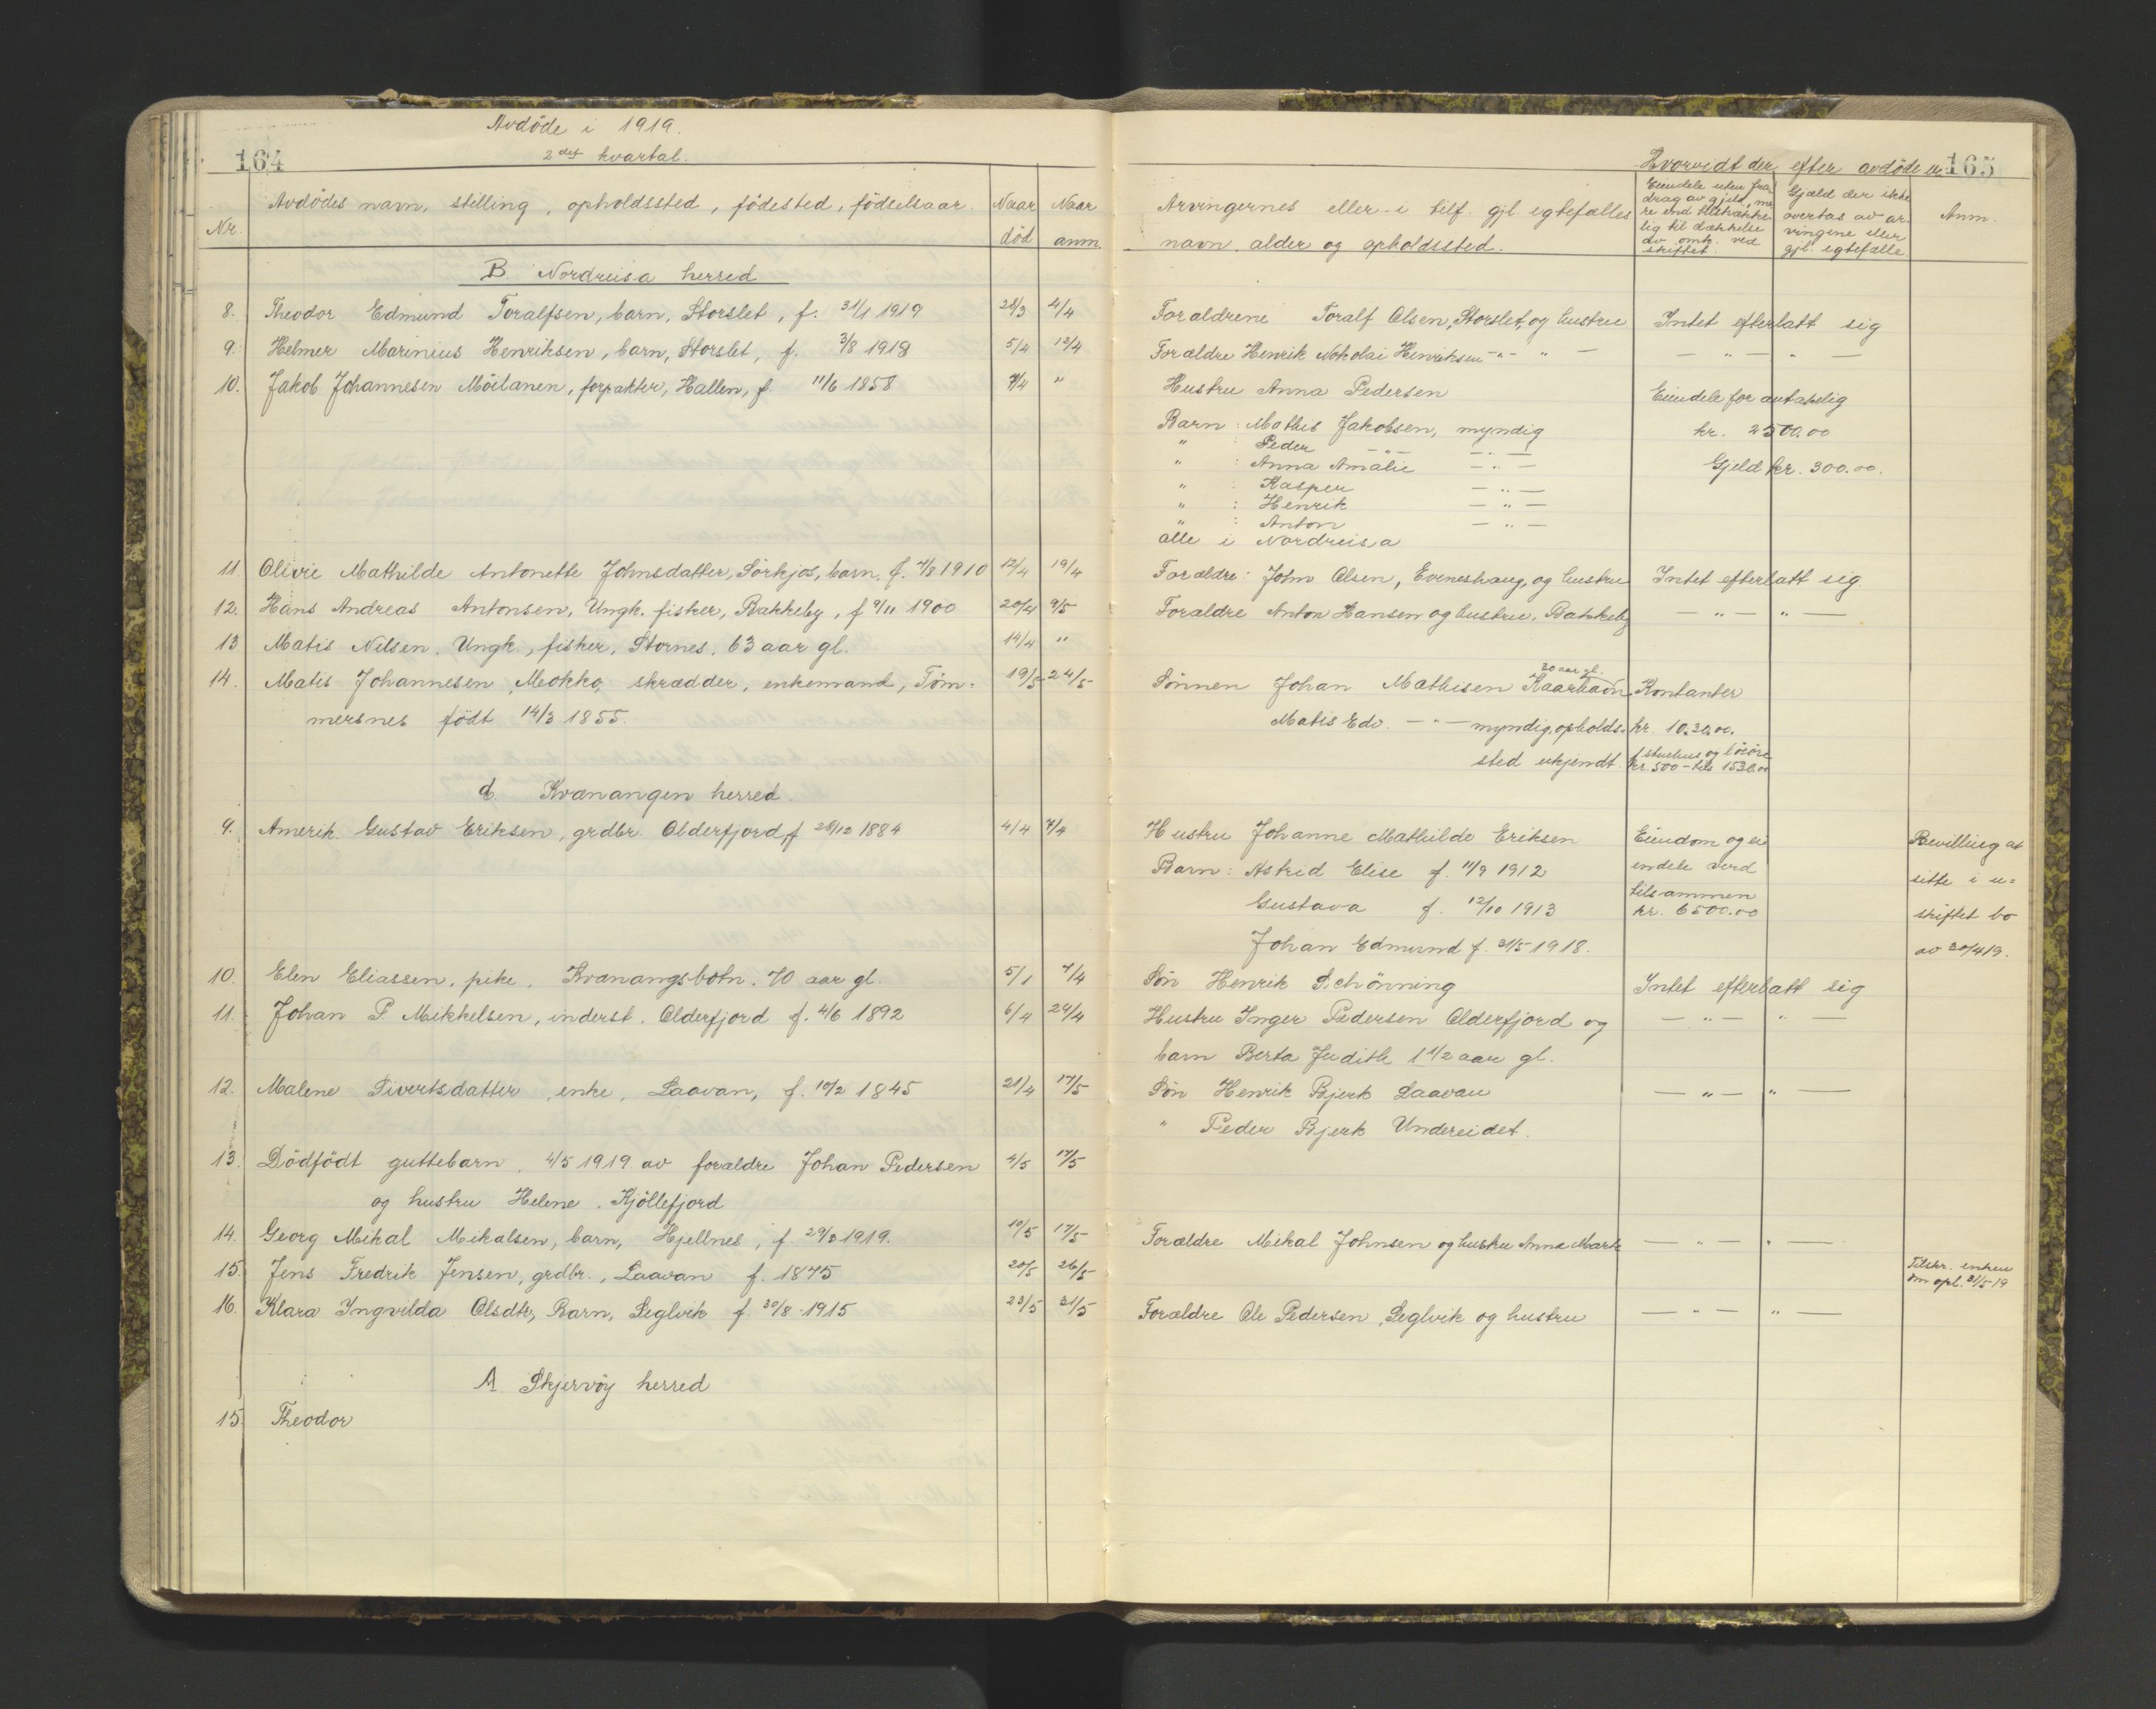 Avdöde i 1919.
164
2det kvartal.
Nr.
Avdödes navn, stilling, opholdssted, födested, födselsaar.
Naar död
Naar anm.
B. Nordreisa herred
8. Theodor Edmund Toralfsen, barn, Storslet, f. 31/1 1919 28/3 4/4
9. Helmer Marinius Henriksen, barn, Storslet, f. 3/8 1918 5/4 12/4
10. Jakob Johannesen Möilanen, forpakter, Hallen, f. 11/6 1858 7/4 "
11 Olivie Mathilde Antonette Johnsdatter, Sörkjos, barn, f. 7/8 1910 12/4 19/4
12. Hans Andreas Antonsen, Ungk. fisker, Bakkeby, f 9/11 1900 20/4 9/5
13 Matis Nilsen, Ungk., fisker, Stornes, 63 aar gl. 14/4 "
14. Matis Johannesen Mokko, skrædder, enkemand, Töm- 19/5 24/5
mersnes födt 14/3 1855.
C. Kvænangen herred.
9. Amerik Gustav Eriksen, grdbr. Olderfjord, f 28/12 1884 4/4 7/4
10. Elen Eliassen, pike, Kvænangsbotn. 70 aar gl. 5/1 7/4
11. Johan P. Mikkelsen, inderst. Olderfjord f. 4/6 1892 6/4 24/4
12. Malene Sivertsdatter, enke, Laavan, f. 10/2 1845 21/4 17/5
13. Dödfödt guttebarn, 4/5 1919 av forældre Johan Pedersen 4/5 17/5
og hustru Helene. Kjöllefjord
14. Georg Mikal Mikalsen, barn, Hjellnes, f 29/3 1919. 10/5 17/5
15. Jens Fredrik Jensen, grdbr., Laavan f. 1875 20/5 26/5
16. Klara Ingvilda Olsdtr, Barn, Seglvik f. 30/8 1915 23/5 31/5
A Skjervöy herred
15. Theodor
165
Hvorvidt der efter avdöde er:
Arvingernes eller i tilf. gjl. egtefælles
navn, alder og opholdssted.
Eiendele uten fra
drag av gjeld, me
re end tilstrække
lig til dækkelse
av omk. ved
skiftet.
Gjæld der ikke
overtas av ar
vingene eller
gjl. egtefælle
Anm.
Forældrene Toralf Olsen, Storslet, og hustru Intet efterlatt sig
Forældre Henrik Nokolai Henriksen -"- " - - " - " -
Hustru Anna Pedersen Eiendele for antakelig
Barn: Mathis Jakobsen, myndig kr. 2500.00
" : Peder -"- -"-
" : Anna Amalie -"- Gjeld kr. 300.00.
" : Kasper -"-
" : Henrik -"-
" : Anton -"-
alle i Nordreisa
Forældre: John Olsen, Eveneshaug, og hustru Intet efterlatt sig
Forældre Anton Hansen og hustru, Bakkeby - " - " -
30 aar gl.
Sönnen Johan Mathisen Kaarhavn Kontanter
Matis Edv. -"- myndig, opholds- kr. 1030.00.
sted ukjendt. 1 stuehus og lösöre
kr. 500 - tils 1530.00
Hustru Johanne Mathilde Eriksen Eiendom og ei
Barn: Astrid Elise f. 11/9 1912 endele verd
Gustava f. 12/10 1913 tilsammen
kr. 6500.00
Johan Edmund f. 31/5 1918.
Bevilling at
sitte i u-
skiftet bo
av 30/4 19.
Sön Henrik Schönning Intet efterlatt sig
Hustru Inger Pedersen Olderfjord og - " - " -
barn Berta Judith 1 1/2 aar gl.
Sön Henrik Bjerk Laavan - " - " -
" Peder Bjerk Undereidet.
Forældre Mikal Johnsen og hustru Anna Marie - " - " -
Tilskr. enken
om opl. 31/5 19
Forældre Ole Pedersen, Seglvik og hustru - " - " -